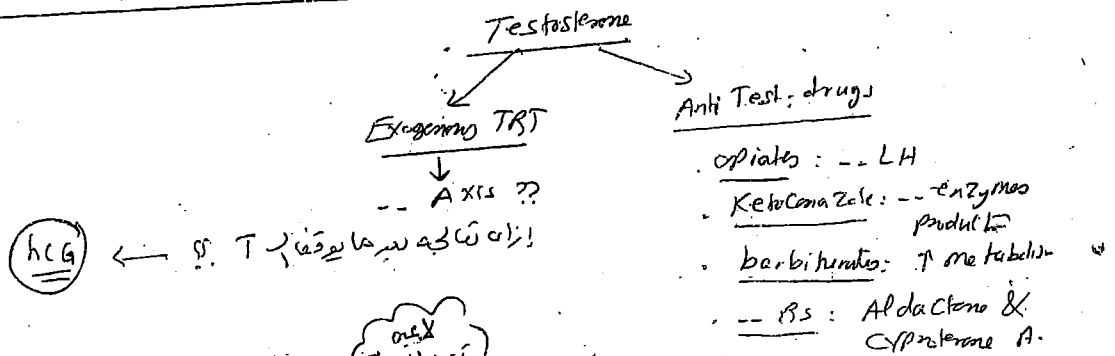 Testosterone
Exogenous TRT
-- Axis ??
hCG ← ؟؟ T إزاى نعالجه بعد ما يوقف ال
Anti Test. drugs
. opiates : -- LH
. Ketoconazole : -- enzymes
product
. barbiturates : ↑ metabolism
. -- Rs : Aldactone &
Cyproterone A.